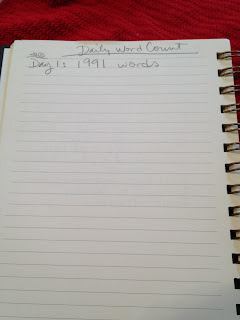 Daily Word Count
Day 1: 1991 words